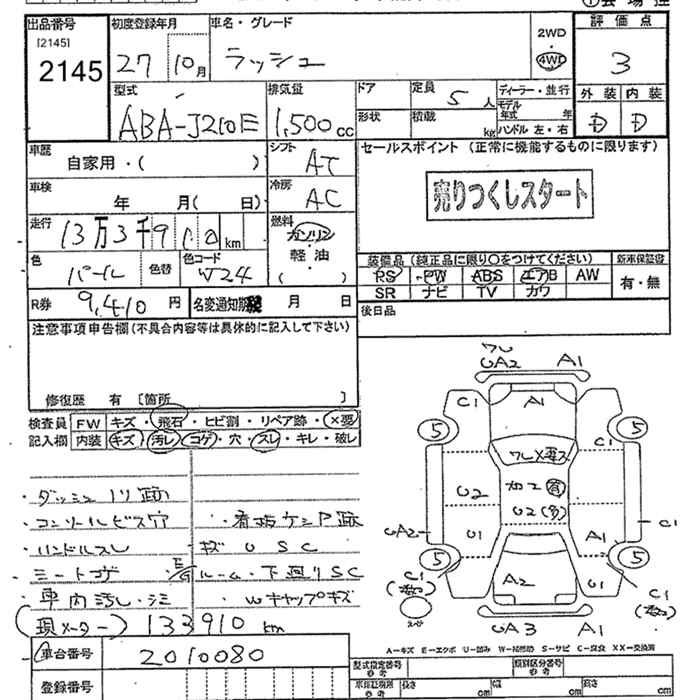 出品番号 初度登録年月 車名・グレード 2WD ・ 4WD 評価点
[2145]
2145 27 10月 ラッシュ 3
型式 排気量 ドア 定員 5人 ディーラー・並行 外装 内装
ABA-J210E 1,500cc 形状 積載 kg モデル年式 年 ハンドル 左・右 D D
車歴 自家用・( ) シフト AT セールスポイント (正常に機能するものに限ります)
車検 年 月( 日) 冷房 AC 売りつくしスタート
走行 13万3千910km 燃料 ガソリン・軽油・( )
色 パール 色替 色コード W24 装備品 (純正品に限り○をつけてください) 新車保証書
PS PW ABS エアB AW 有・無
SR ナビ TV カワ
R券 9,410円 名変通知期限 月 日 後日品
注意事項申告欄(不具合内容等は具体的に記入して下さい)
修復歴 有 [箇所 ]
検査員 FW キズ・飛石・ヒビ割・リペア跡・X要
記入欄 内装 キズ・汚レ・コゲ・穴・スレ・キレ・破レ
・ダッシュ ノリ跡
・コンソールビス穴 ・看板ケシP跡
・ハンドルスレ キズUSC
・シートコゲ E/Gルーム・下廻りSC
・車内汚レ・シミ ・Wキャップキズ
(現メーター) 133910km
車台番号 2010080
登録番号
ワレ
UA2 A1
C1 A1
5 5
ワレX要ス C1
U2 加工(有)
U2(多)
UA2 U1 A1 C1
5 5
C1 A2 U1 C1
スペア UA3 A1
A=キズ E=エクボ U=凹み W=補修跡 S=サビ C=腐食 XX=交換済
型式指定番号 参考 類別区分番号 参考
車体諸元 参考 長さ cm 幅 cm 高さ cm